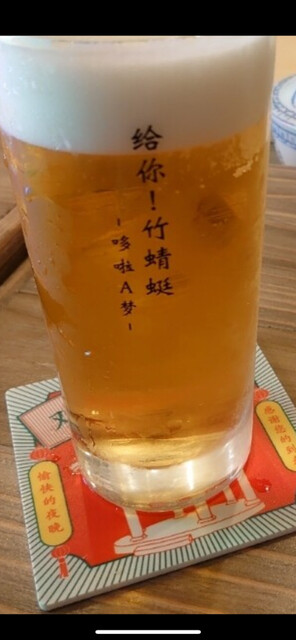 给你！竹蜻蜓
-哆啦A梦-
愉快的夜晚
感谢您的到